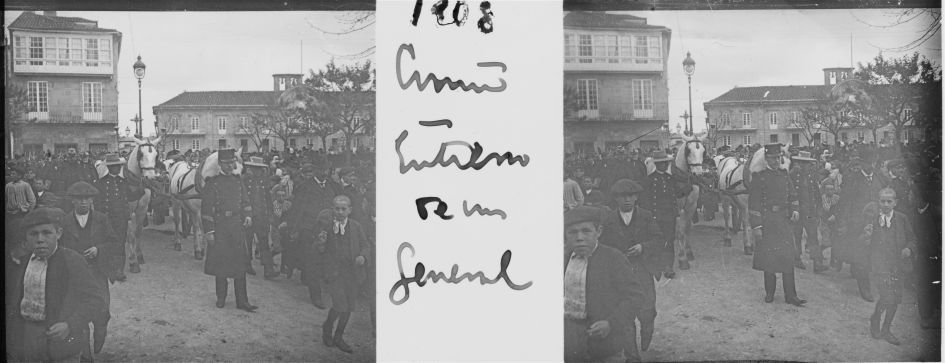 1908
Coruña
Entierro
de un
General